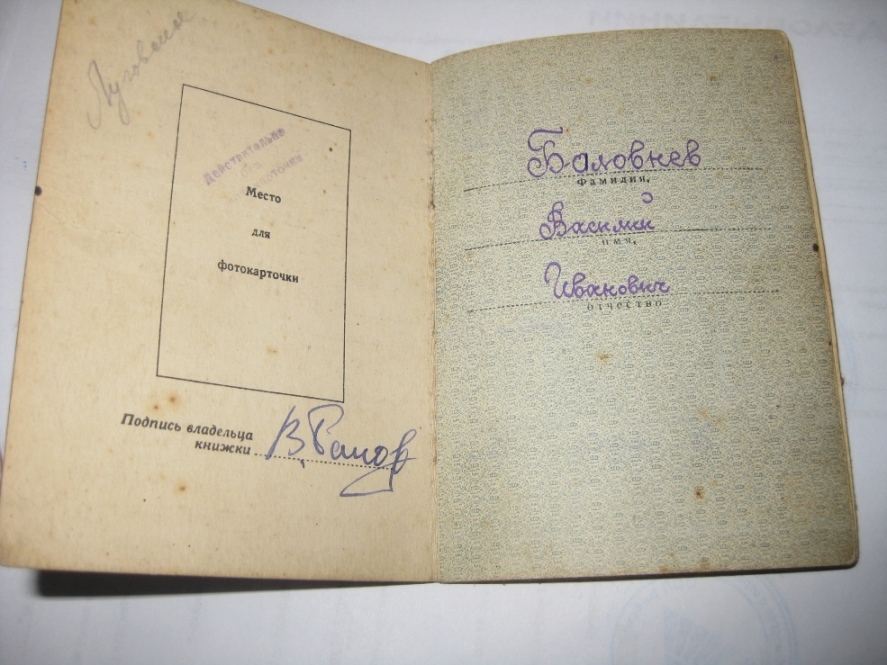 Луговская
Действительно
без
фотокарточки
Место
для
фотокарточки
Подпись владельца
книжки
Боловнев
Фамилия,
Василий
имя,
Иванович
отчество